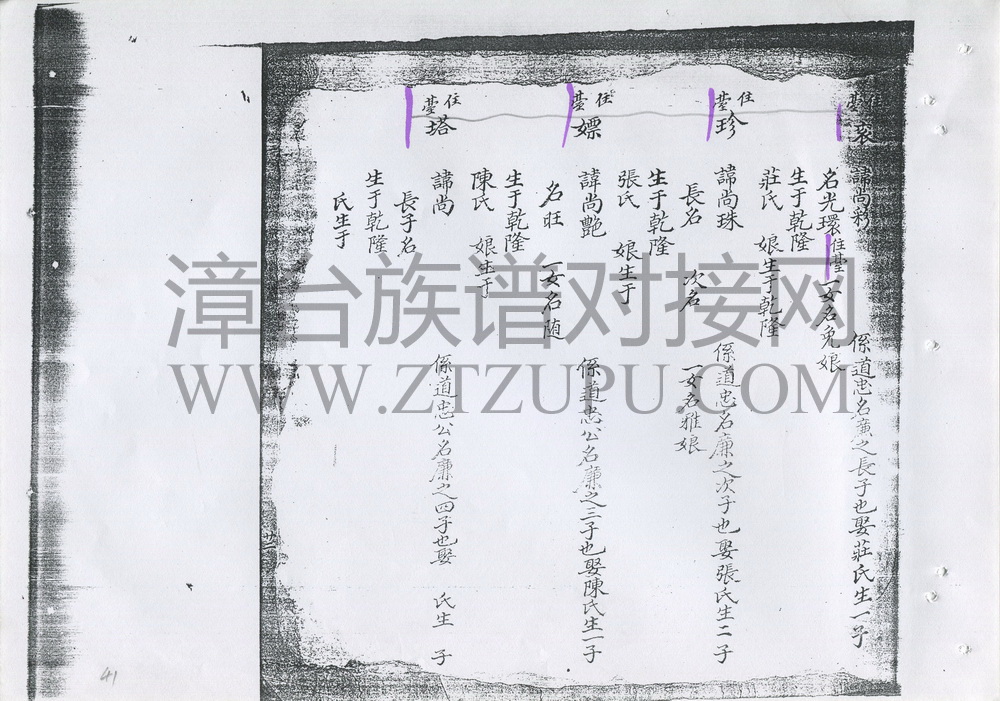 住臺
諱尚彩 係道忠名廉之長子也娶莊氏生一子
名光環住臺 一女名免娘
生于乾隆
莊氏 娘生于乾隆
住臺
珍
諱尚珠 係道忠名廉之次子也娶張氏生二子
長名 次名 一女名雅娘
生于乾隆
張氏 娘生于
住臺
嫖
諱尚艷 係道忠公名廉之三子也娶陳氏生一子
名旺 一女名随
生于乾隆
陳氏 娘生于
住臺
塔
諱尚 係道忠公名廉之四子也娶 氏生 子
長子名
生于乾隆
氏生于
漳台族谱对接网
WWW.ZTZUPU.COM
41